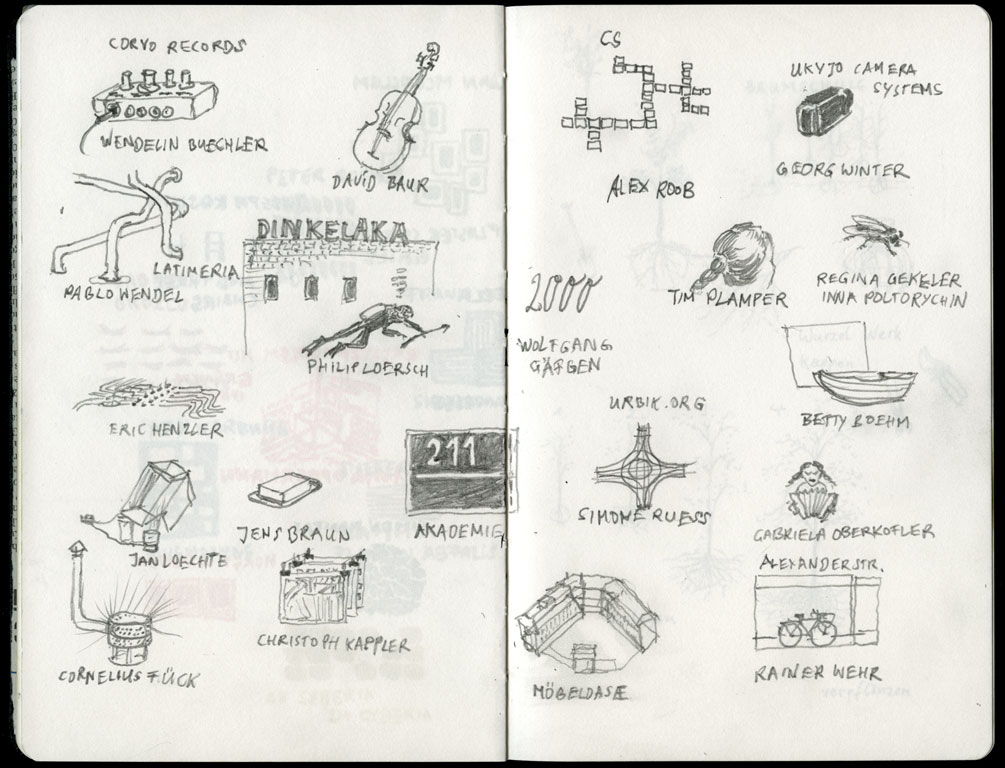 CORVO RECORDS
WENDELIN BUECHLER
DAVID BAUR
LATIMERIA
PABLO WENDEL
DINKELAKA
PHILIP LOERSCH
ERIC HENZLER
211
AKADEMIE
JENS BRAUN
JAN LOECHTE
CHRISTOPH KAPPLER
CORNELIUS F.ÜCK
CS
ALEX ROOB
UKYJO CAMERA
SYSTEMS
GEORG WINTER
2000
WOLFGANG
GÄFGEN
TIM PLAMPER
REGINA GEKELER
INNA POLTORYCHIN
Wurzel Werk
BETTY BOEHM
URBIK.ORG
SIMONE RUESS
GABRIELA OBERKOFLER
MÖBELDASÆ
ALEXANDERSTR.
RAINER WEHR